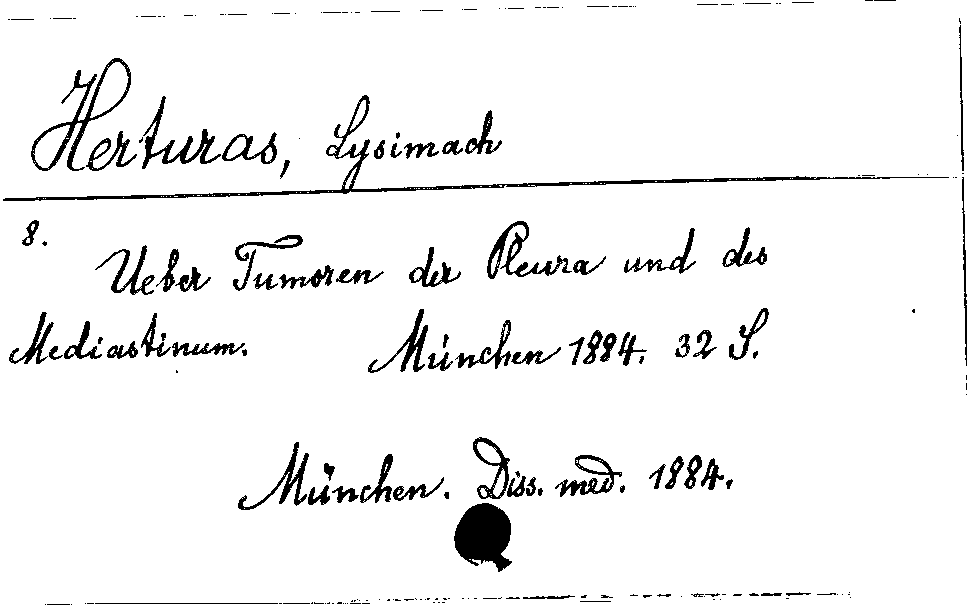 Herturas, Lysimach
8.
Ueber Tumoren der Pleura und des
Mediastinum. München 1884. 32 S.
München. Diss. med. 1884.